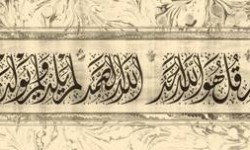 قل هو الله أحد الله الصمد لم يلد ولم يولد